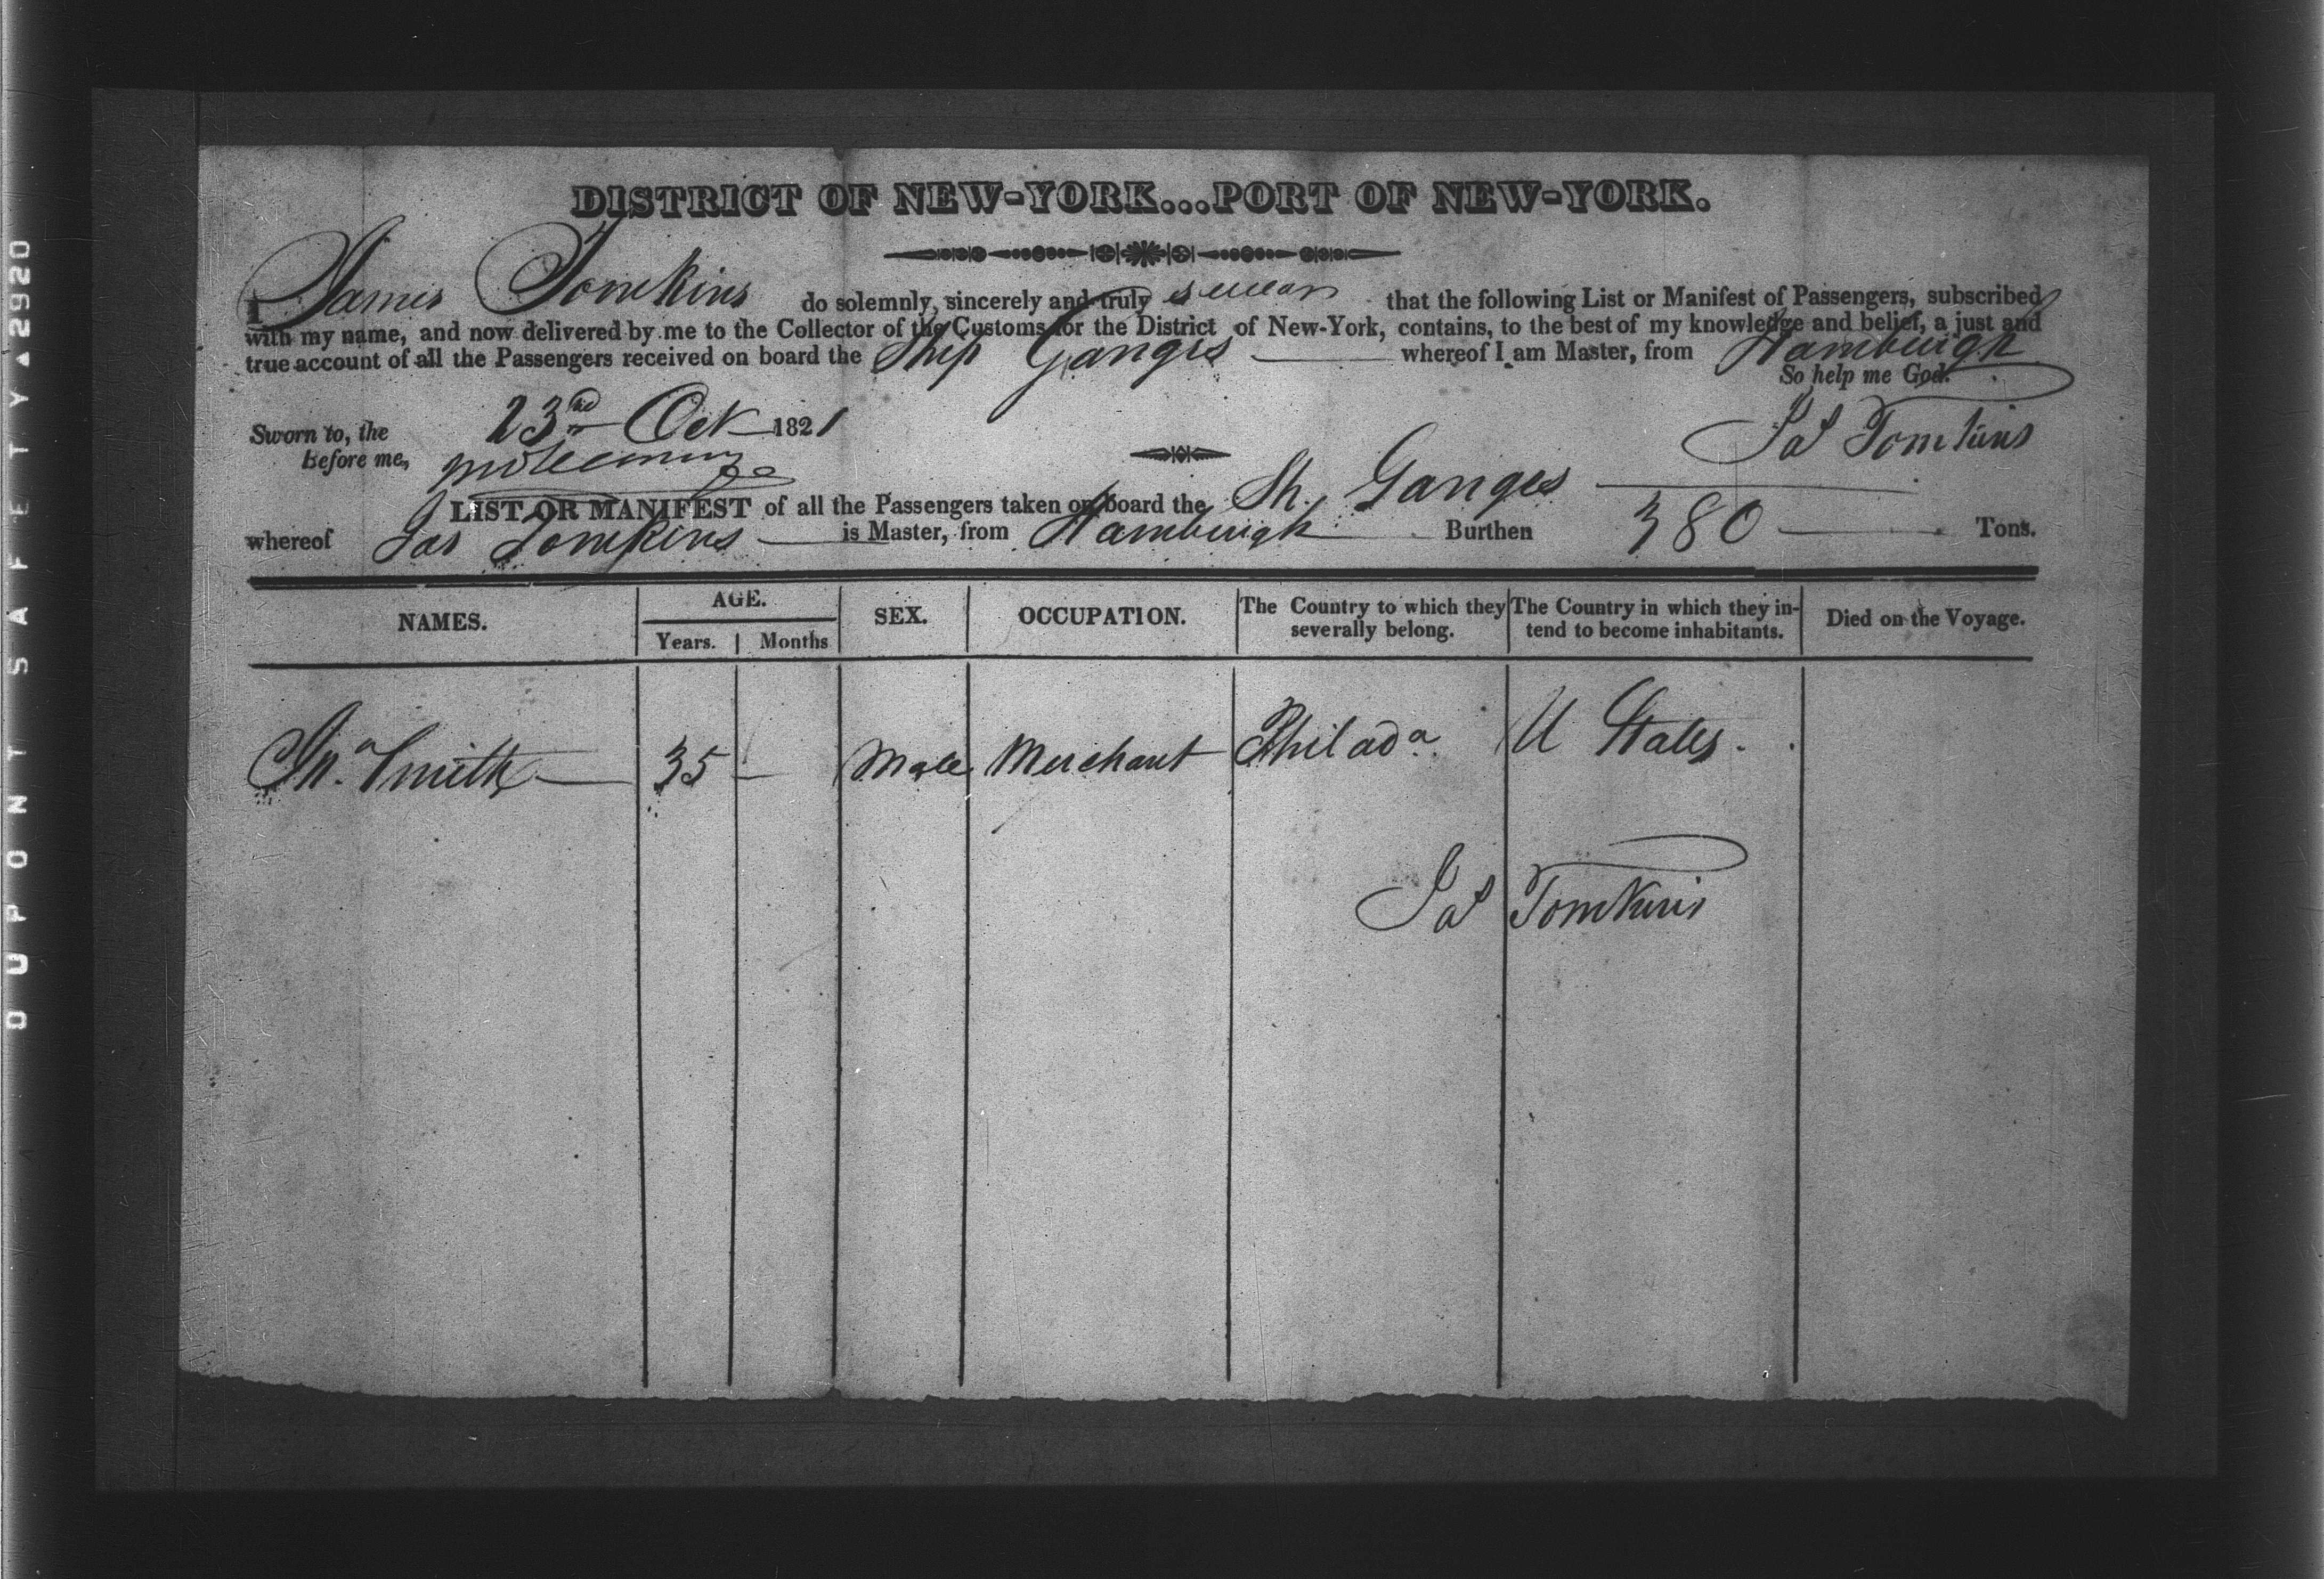 DISTRICT OF NEW-YORK...PORT OF NEW-YORK.
I James Tomkins do solemnly, sincerely and truly swear that the following List or Manifest of Passengers, subscribed
with my name, and now delivered by me to the Collector of the Customs for the District of New-York, contains, to the best of my knowledge and belief, a just and
true account of all the Passengers received on board the Ship Ganges whereof I am Master, from Hamburgh
So help me God.
Sworn to, the 23rd Oct 1821
Jas Tomkins
Before me,
LIST OR MANIFEST of all the Passengers taken on board the Sh. Ganges
whereof Jas Tomkins is Master, from Hamburgh Burthen 380 Tons.
NAMES. AGE. Years. Months SEX. OCCUPATION. The Country to which they severally belong. The Country in which they intend to become inhabitants. Died on the Voyage.
Jno. Smith 35 — Male Merchant Philada. U States.
Jas Tomkins
DUPONT SAFETY ▲ 2920